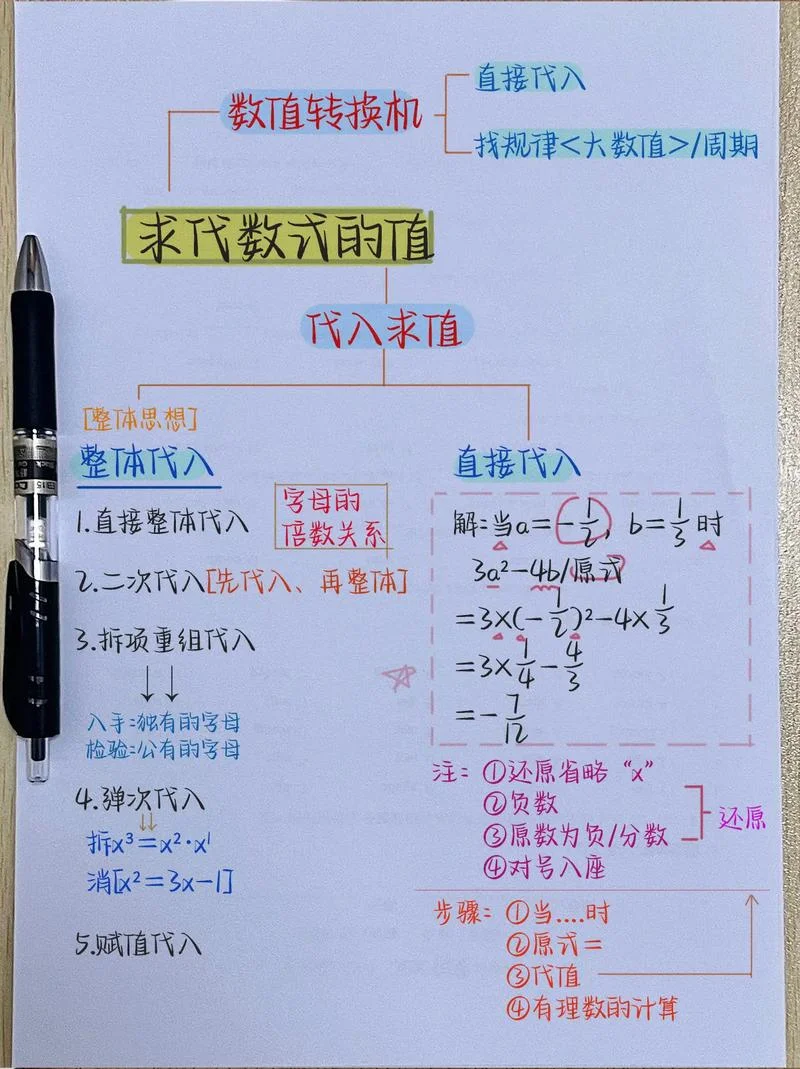 数值转换机
直接代入
找规律<大数值>/周期
求代数式的值
代入求值
[整体思想]
整体代入
字母的
倍数关系
1.直接整体代入
2.二次代入[先代入、再整体]
3.拆项重组代入
↓↓
入手:独有的字母
检验:公有的字母
4.弹次代入
↓↓
拆x³=x²·x¹
消[x²=3x-1]
5.赋值代入
直接代入
解:当a=-1/2, b=1/3时
3a²-4b/原式
=3×(-1/2)²-4×1/3
=3×1/4-4/3
=-7/12
注: ①还原省略“x”
②负数
③原数为负/分数
还原
④对号入座
步骤: ①当....时
②原式=
③代值
④有理数的计算